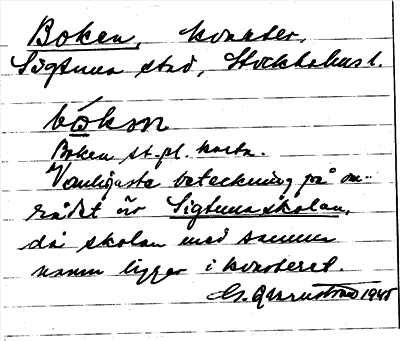 Boken, kvarter,
Sigtuna stad, Stockholms l.
bókən
Boken st.pl. karta.
Vanligaste beteckning på om-
rådet är Sigtunaskolan,
då skolan med samma
namn ligger i kvarteret.
G. 1945